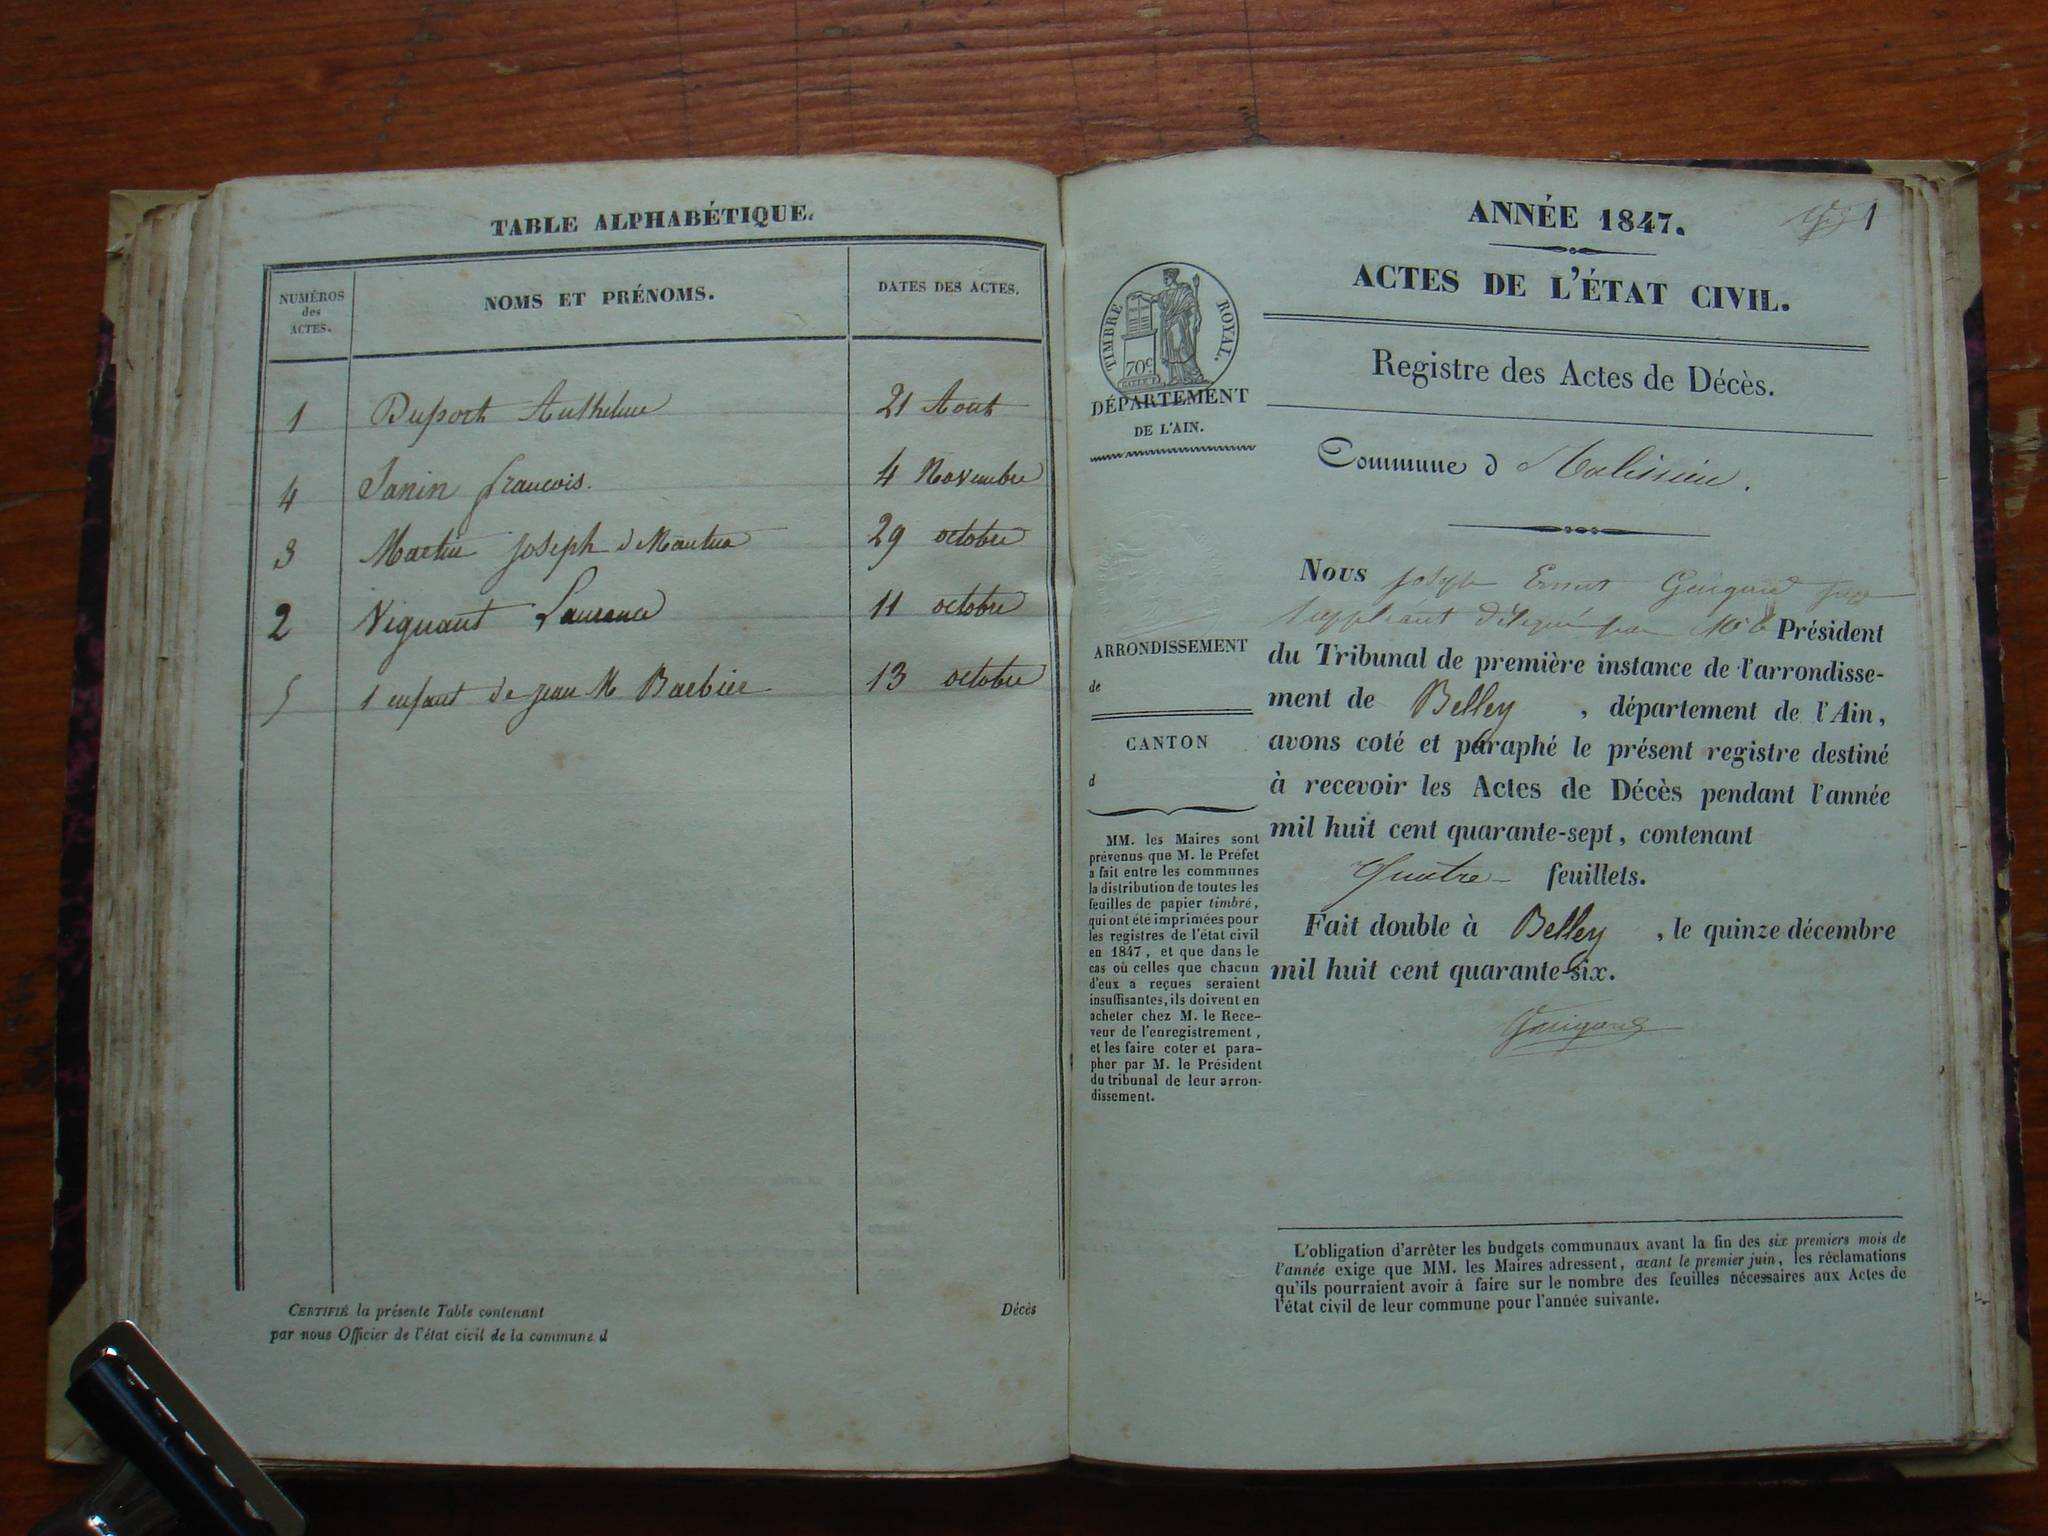 TABLE ALPHABÉTIQUE.
NUMÉROS des ACTES. NOMS ET PRÉNOMS. DATES DES ACTES.
1 Duport Anthelme 21 Aout
4 Janin francois. 4 Novembre
3 Martin joseph d Mantua 29 octobre
2 Vignant Laurence 11 octobre
5 1 enfant de jean M Barbier 13 octobre
CERTIFIÉ la présente Table contenant Décès
par nous Officier de l'état civil de la commune d
1
ANNÉE 1847.
ACTES DE L'ÉTAT CIVIL.
TIMBRE ROYAL.
70c
DÉPARTEMENT
DE L'AIN.
Registre des Actes de Décès.
Commune d
ARRONDISSEMENT
de
CANTON
d
MM. les Maires sont
prévenus que M. le Préfet
a fait entre les communes
la distribution de toutes les
feuilles de papier timbré,
qui ont été imprimées pour
les registres de l'état civil
en 1847, et que dans le
cas où celles que chacun
d'eux a reçues seraient
insuffisantes, ils doivent en
acheter chez M. le Rece-
veur de l'enregistrement,
et les faire coter et para-
pher par M. le Président
du tribunal de leur arron-
dissement.
Nous joseph Ernest Guigard juge
suppléant délégué par Mr le Président
du Tribunal de première instance de l'arrondisse-
ment de Belley, département de l'Ain,
avons coté et paraphé le présent registre destiné
à recevoir les Actes de Décès pendant l'année
mil huit cent quarante-sept, contenant
Quatre feuillets.
Fait double à Belley, le quinze décembre
mil huit cent quarante-six.
Guigard
L'obligation d'arrêter les budgets communaux avant la fin des six premiers mois de
l'année exige que MM. les Maires adressent, avant le premier juin, les réclamations
qu'ils pourraient avoir à faire sur le nombre des feuilles nécessaires aux Actes de
l'état civil de leur commune pour l'année suivante.